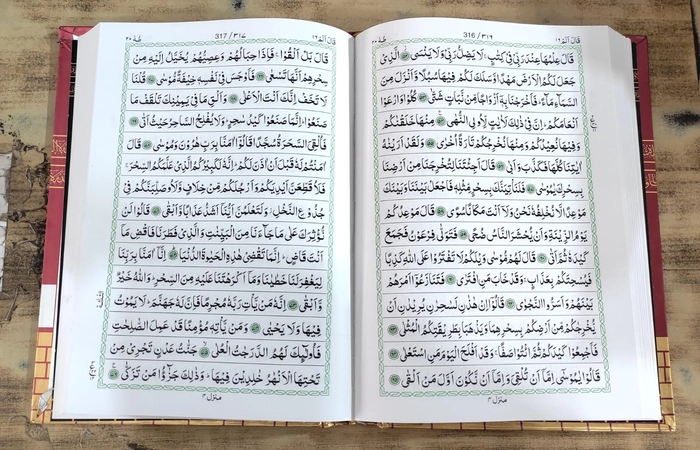 قال الم ١٦
316 / ٣١٦
طٰهٰ ٢٠
قَالَ عِلْمُهَا عِنْدَ رَبِّيْ فِيْ كِتٰبٍ ۚ لَا يَضِلُّ رَبِّيْ وَلَا يَنْسَى ٥٢ الَّذِيْ
جَعَلَ لَكُمُ الْاَرْضَ مَهْدًا وَّسَلَكَ لَكُمْ فِيْهَا سُبُلًا وَّاَنْزَلَ مِنَ
السَّمَآءِ مَآءً ؕ فَاَخْرَجْنَا بِهٖۤ اَزْوَاجًا مِّنْ نَّبَاتٍ شَتّٰى ٥٣ كُلُوْا وَارْعَوْا
اَنْعَامَكُمْ ؕ اِنَّ فِيْ ذٰلِكَ لَاٰيٰتٍ لِّاُولِي النُّهٰى ٥٤ مِنْهَا خَلَقْنٰكُمْ
وَفِيْهَا نُعِيْدُكُمْ وَمِنْهَا نُخْرِجُكُمْ تَارَةً اُخْرٰى ٥٥ وَلَقَدْ اَرَيْنٰهُ
اٰيٰتِنَا كُلَّهَا فَكَذَّبَ وَاَبٰى ٥٦ قَالَ اَجِئْتَنَا لِتُخْرِجَنَا مِنْ اَرْضِنَا
بِسِحْرِكَ يٰمُوْسٰى ٥٧ فَلَنَاْتِيَنَّكَ بِسِحْرٍ مِّثْلِهٖ فَاجْعَلْ بَيْنَنَا وَبَيْنَكَ
مَوْعِدًا لَّا نُخْلِفُهٗ نَحْنُ وَلَاۤ اَنْتَ مَكَانًا سُوًى ٥٨ قَالَ مَوْعِدُكُمْ
يَوْمُ الزِّيْنَةِ وَاَنْ يُّحْشَرَ النَّاسُ ضُحًى ٥٩ فَتَوَلّٰى فِرْعَوْنُ فَجَمَعَ
كَيْدَهٗ ثُمَّ اَتٰى ٦٠ قَالَ لَهُمْ مُّوْسٰى وَيْلَكُمْ لَا تَفْتَرُوْا عَلَى اللّٰهِ كَذِبًا
فَيُسْحِتَكُمْ بِعَذَابٍ ۚ وَقَدْ خَابَ مَنِ افْتَرٰى ٦١ فَتَنَازَعُوْۤا اَمْرَهُمْ
بَيْنَهُمْ وَاَسَرُّوا النَّجْوٰى ٦٢ قَالُوْۤا اِنْ هٰذٰنِ لَسٰحِرٰنِ يُرِيْدٰنِ اَنْ
يُّخْرِجٰكُمْ مِّنْ اَرْضِكُمْ بِسِحْرِهِمَا وَيَذْهَبَا بِطَرِيْقَتِكُمُ الْمُثْلٰى ٦٣
فَاَجْمِعُوْا كَيْدَكُمْ ثُمَّ ائْتُوْا صَفًّا ۚ وَقَدْ اَفْلَحَ الْيَوْمَ مَنِ اسْتَعْلٰى ٦٤
قَالُوْا يٰمُوْسٰۤى اِمَّاۤ اَنْ تُلْقِيَ وَاِمَّاۤ اَنْ نَّكُوْنَ اَوَّلَ مَنْ اَلْقٰى ٦٥
منزل ٤
قال الم ١٦
317 / ٣١٧
طٰهٰ ٢٠
قَالَ بَلْ اَلْقُوْا ۚ فَاِذَا حِبَالُهُمْ وَعِصِيُّهُمْ يُخَيَّلُ اِلَيْهِ مِنْ
سِحْرِهِمْ اَنَّهَا تَسْعٰى ٦٦ فَاَوْجَسَ فِيْ نَفْسِهٖ خِيْفَةً مُّوْسٰى ٦٧ قُلْنَا
لَا تَخَفْ اِنَّكَ اَنْتَ الْاَعْلٰى ٦٨ وَاَلْقِ مَا فِيْ يَمِيْنِكَ تَلْقَفْ مَا
صَنَعُوْا ؕ اِنَّمَا صَنَعُوْا كَيْدُ سٰحِرٍ ؕ وَلَا يُفْلِحُ السَّاحِرُ حَيْثُ اَتٰى ٦٩
فَاُلْقِيَ السَّحَرَةُ سُجَّدًا قَالُوْۤا اٰمَنَّا بِرَبِّ هٰرُوْنَ وَمُوْسٰى ٧٠ قَالَ
اٰمَنْتُمْ لَهٗ قَبْلَ اَنْ اٰذَنَ لَكُمْ ؕ اِنَّهٗ لَكَبِيْرُكُمُ الَّذِيْ عَلَّمَكُمُ السِّحْرَ ۚ
فَلَاُقَطِّعَنَّ اَيْدِيَكُمْ وَاَرْجُلَكُمْ مِّنْ خِلَافٍ وَّلَاُوصَلِّبَنَّكُمْ فِيْ
جُذُوْعِ النَّخْلِ ؗ وَلَتَعْلَمُنَّ اَيُّنَاۤ اَشَدُّ عَذَابًا وَّاَبْقٰى ٧١ قَالُوْا لَنْ
نُّؤْثِرَكَ عَلٰى مَا جَآءَنَا مِنَ الْبَيِّنٰتِ وَالَّذِيْ فَطَرَنَا فَاقْضِ مَاۤ
اَنْتَ قَاضٍ ؕ اِنَّمَا تَقْضِيْ هٰذِهِ الْحَيٰوةَ الدُّنْيَا ٧٢ اِنَّاۤ اٰمَنَّا بِرَبِّنَا
لِيَغْفِرَ لَنَا خَطٰيٰنَا وَمَاۤ اَكْرَهْتَنَا عَلَيْهِ مِنَ السِّحْرِ ؕ وَاللّٰهُ خَيْرٌ
وَّاَبْقٰى ٧٣ اِنَّهٗ مَنْ يَّاْتِ رَبَّهٗ مُجْرِمًا فَاِنَّ لَهٗ جَهَنَّمَ ؕ لَا يَمُوْتُ
فِيْهَا وَلَا يَحْيٰى ٧٤ وَمَنْ يَّاْتِهٖ مُؤْمِنًا قَدْ عَمِلَ الصّٰلِحٰتِ
فَاُولٰٓئِكَ لَهُمُ الدَّرَجٰتُ الْعُلٰى ٧٥ جَنّٰتُ عَدْنٍ تَجْرِيْ مِنْ
تَحْتِهَا الْاَنْهٰرُ خٰلِدِيْنَ فِيْهَا ؕ وَذٰلِكَ جَزٰٓؤُا مَنْ تَزَكّٰى ٧٦
منزل ٤